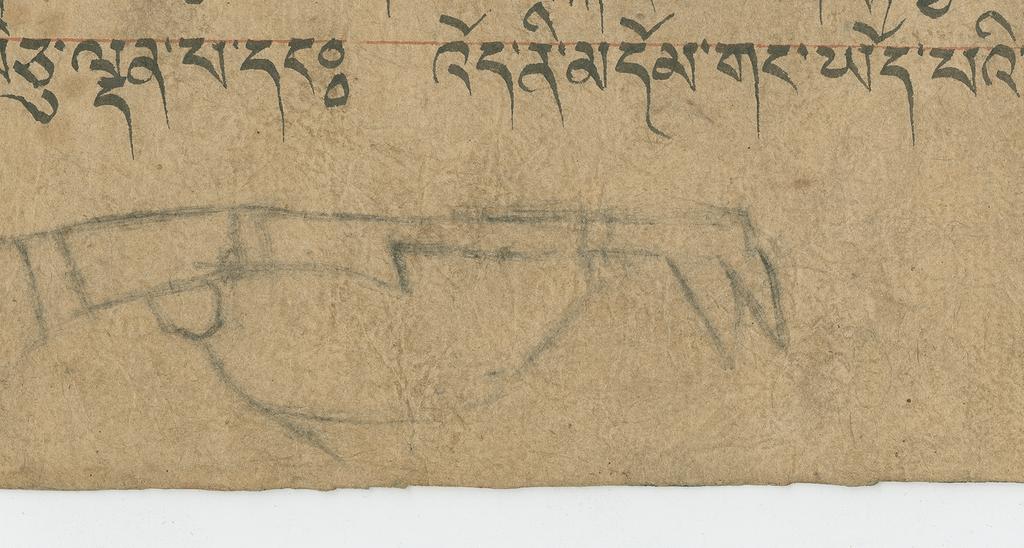 ལྡན་པ་དང༔ འོད་ནི་མ་དོམ་གང་ཡོད་པའི